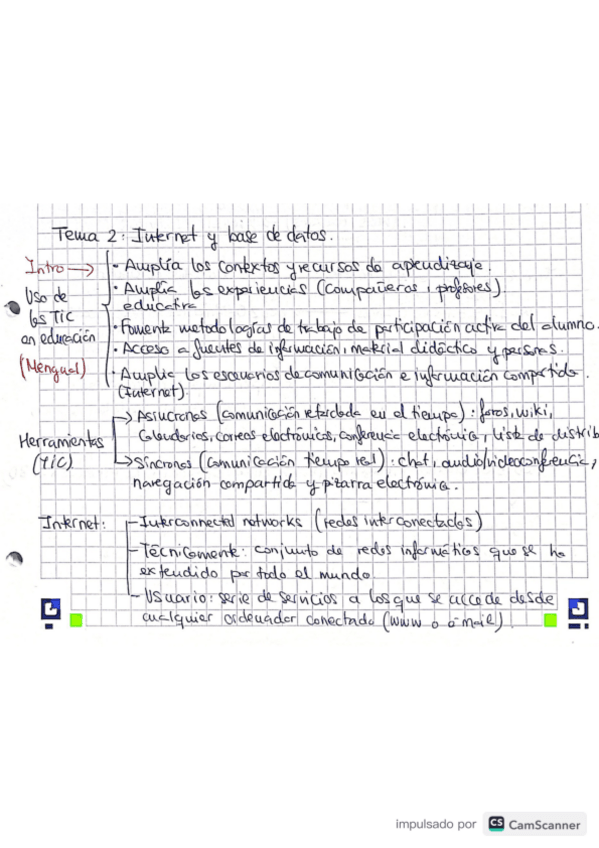 Tema 2: Internet y base de datos.
Intro → · Amplía los contextos y recursos de aprendizaje.
Uso de las TIC en educación (Mengual)
· Amplía las experiencias (compañeros, profesores).
educativa
· Fomente metodologías de trabajo de participación activa del alumno.
· Acceso a fuentes de información, material didáctico y personas.
· Amplía los escenarios de comunicación e información compartida.
(Internet)
Herramientas (TIC)
→ Asíncronos (comunicación retardada en el tiempo): foros, wiki,
Calendarios, correos electrónicos, conferencia electrónica, lista de distrib
→ Síncronos (comunicación tiempo real): chat, audio/videoconferencia,
navegación compartida y pizarra electrónica.
Internet: - Interconnected networks (redes interconectadas)
- Técnicamente: conjunto de redes informáticas que se ha
extendido por todo el mundo
- Usuario: serie de servicios a los que se accede desde
cualquier ordenador conectado (www o e-mail).
impulsado por CS CamScanner